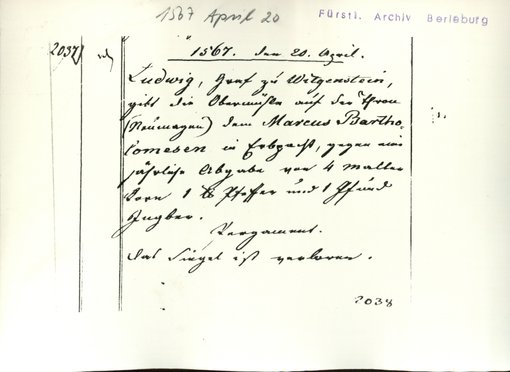 1567 April 20
Fürstl. Archiv Berleburg
2037
1567. den 20. April.
Ludwig, Graf zu Witgenstein,
gibt die Obermühle auf der Thron
(Neumagen) dem Marcus Bartho-
lomesen in Erbpacht, gegen eine
jährliche Abgabe von 4 Malter
Korn 1 ℔ Pfeffer und 1 Pfund
Ingber.
Pergament.
Das Siegel ist verloren.
2038